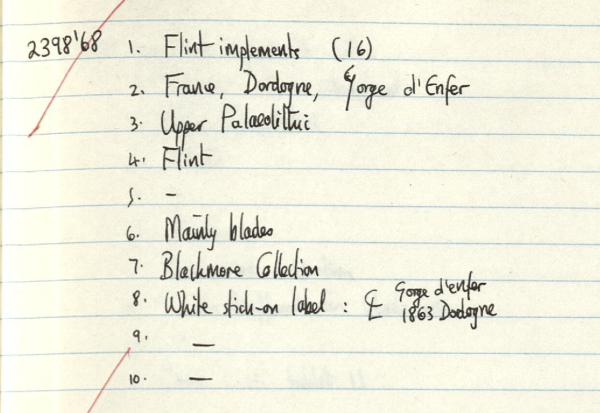 2398'68 1. Flint implements (16)
2. France, Dordogne, Gorge d'Enfer
3. Upper Palaeolithic
4. Flint
5. –
6. Mainly blades
7. Blackmore Collection
8. White stick-on label : Gorge d'enfer
1863 Dordogne
9. —
10. —